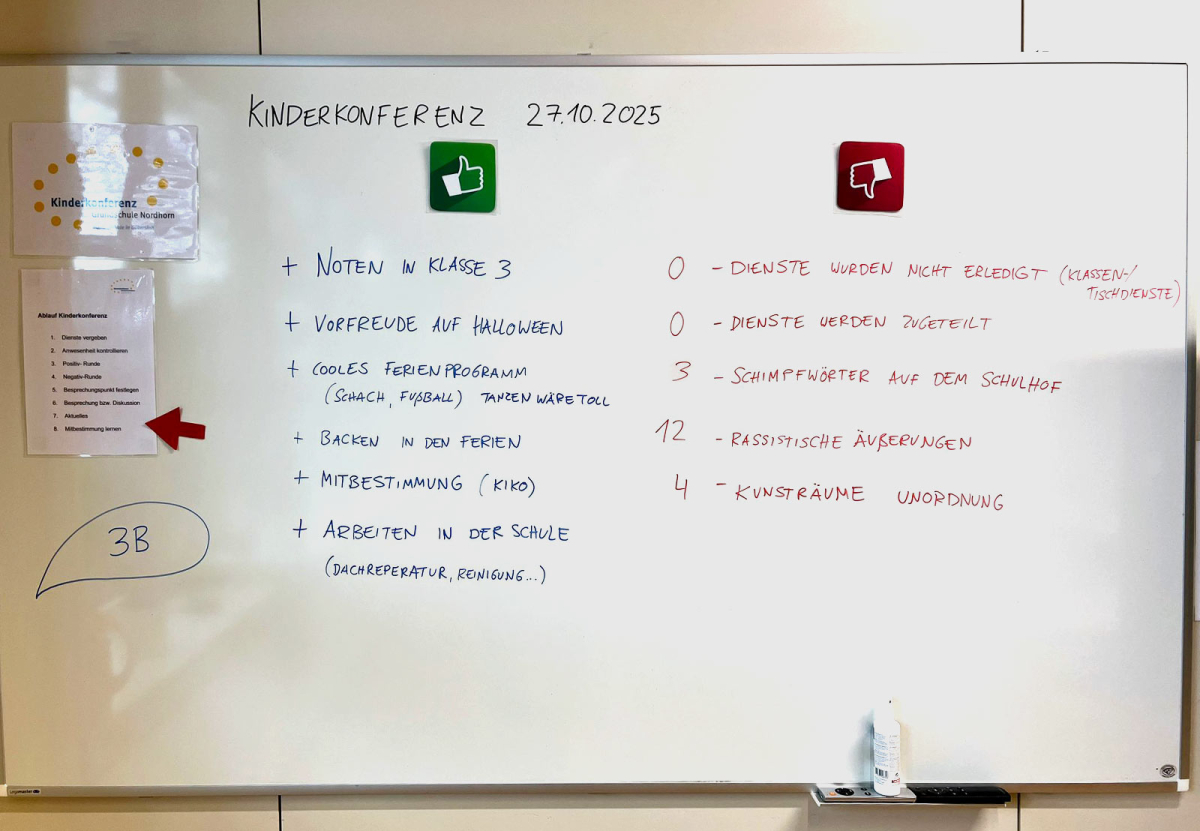 KINDERKONFERENZ 27.10.2025
Kinderkonferenz
Grundschule Nordhorn
Ablauf Kinderkonferenz
1. Dienste vergeben
2. Anwesenheit kontrollieren
3. Positiv- Runde
4. Negativ-Runde
5. Besprechungspunkt festlegen
6. Besprechung bzw. Diskussion
7. Aktuelles
8. Mitbestimmung lernen
3B
+ NOTEN IN KLASSE 3
+ VORFREUDE AUF HALLOWEEN
+ COOLES FERIENPROGRAMM
(SCHACH, FUßBALL) TANZEN WÄRE TOLL
+ BACKEN IN DEN FERIEN
+ MITBESTIMMUNG (KIKO)
+ ARBEITEN IN DER SCHULE
(DACHREPERATUR, REINIGUNG...)
0 - DIENSTE WURDEN NICHT ERLEDIGT (KLASSEN-/
TISCHDIENSTE)
0 - DIENSTE WERDEN ZUGETEILT
3 - SCHIMPFWÖRTER AUF DEM SCHULHOF
12 - RASSISTISCHE ÄUßERUNGEN
4 - KUNSTRÄUME UNORDNUNG